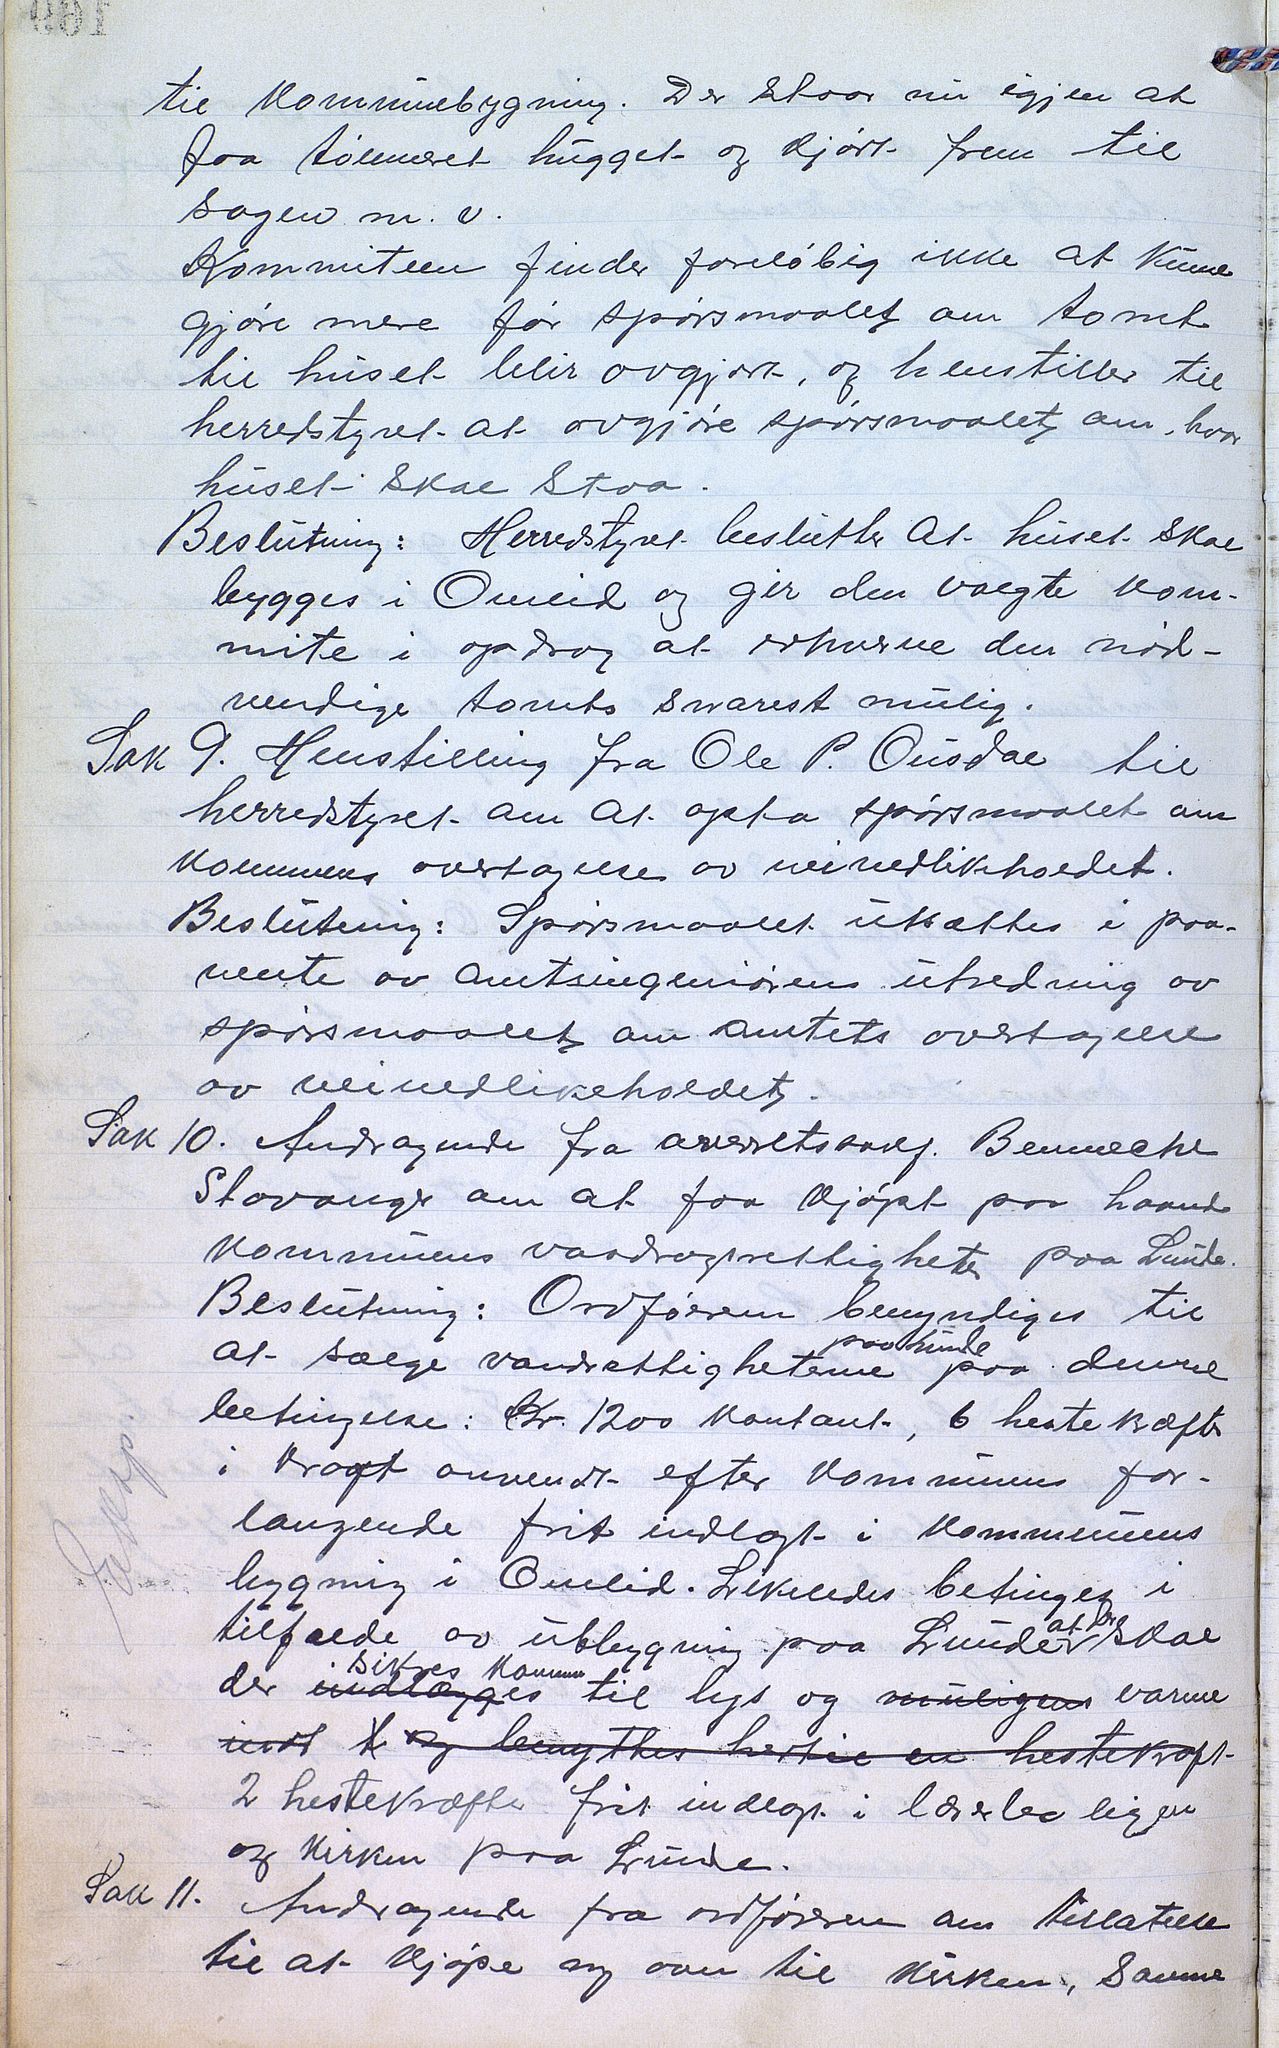 til Kommunebygning. Der staar nu igjen at
faa tømmeret hugget og kjørt frem til
sagen m. v.
Kommiteen finder foreløbig ikke at kunne
gjøre mere før spørsmaalet om tomt
til huset blir avgjort, og henstiller til
herredstyret at avgjøre spørsmaalet om, hvor
huset skal staa.
Beslutning: Herredstyret beslutter at huset skal
bygges i Omlid og gir den valgte kom-
mite i opdrag at erhverve den nød-
vendige tomts snarest mulig.
Sak 9. Henstilling fra Ole P. Ousdal til
herredstyret om at opta spørsmaalet om
kommunens overtagelse av veivedlikeholdet.
Beslutning: Spørsmaalet utsættes i paa-
vente av amtsingeniørens utredning av
spørsmaalet om amtets overtagelse
av veivedlikeholdet.
Sak 10. Andragende fra overretssakf. Benneche
Stavanger om at faa kjøpt paa haand
kommunens vasdragsrettigheter paa Lunde.
Beslutning: Ordføreren bemyndiges til
at sælge vandrettigheterne paa Lunde paa denne
betingelse: Kr. 1200 kontant, 6 hestekræfter
i kraft anvendt efter kommunens for-
langende frit indlagt i kommunens
bygning i Omlid. Likeledes betinges i
tilfælde av utbygning paa Lunde at der skal
der indlægges sikres Kommunen til lys og muligens varme
indt og benyttes hertil en hestekraft
2 hestekræfter frit indlagt i lærerboligen
og kirken paa Lunde.
Sak 11. Andragende fra ordføreren om tillatelse
til at kjøpe ny ovn til kirken, samme